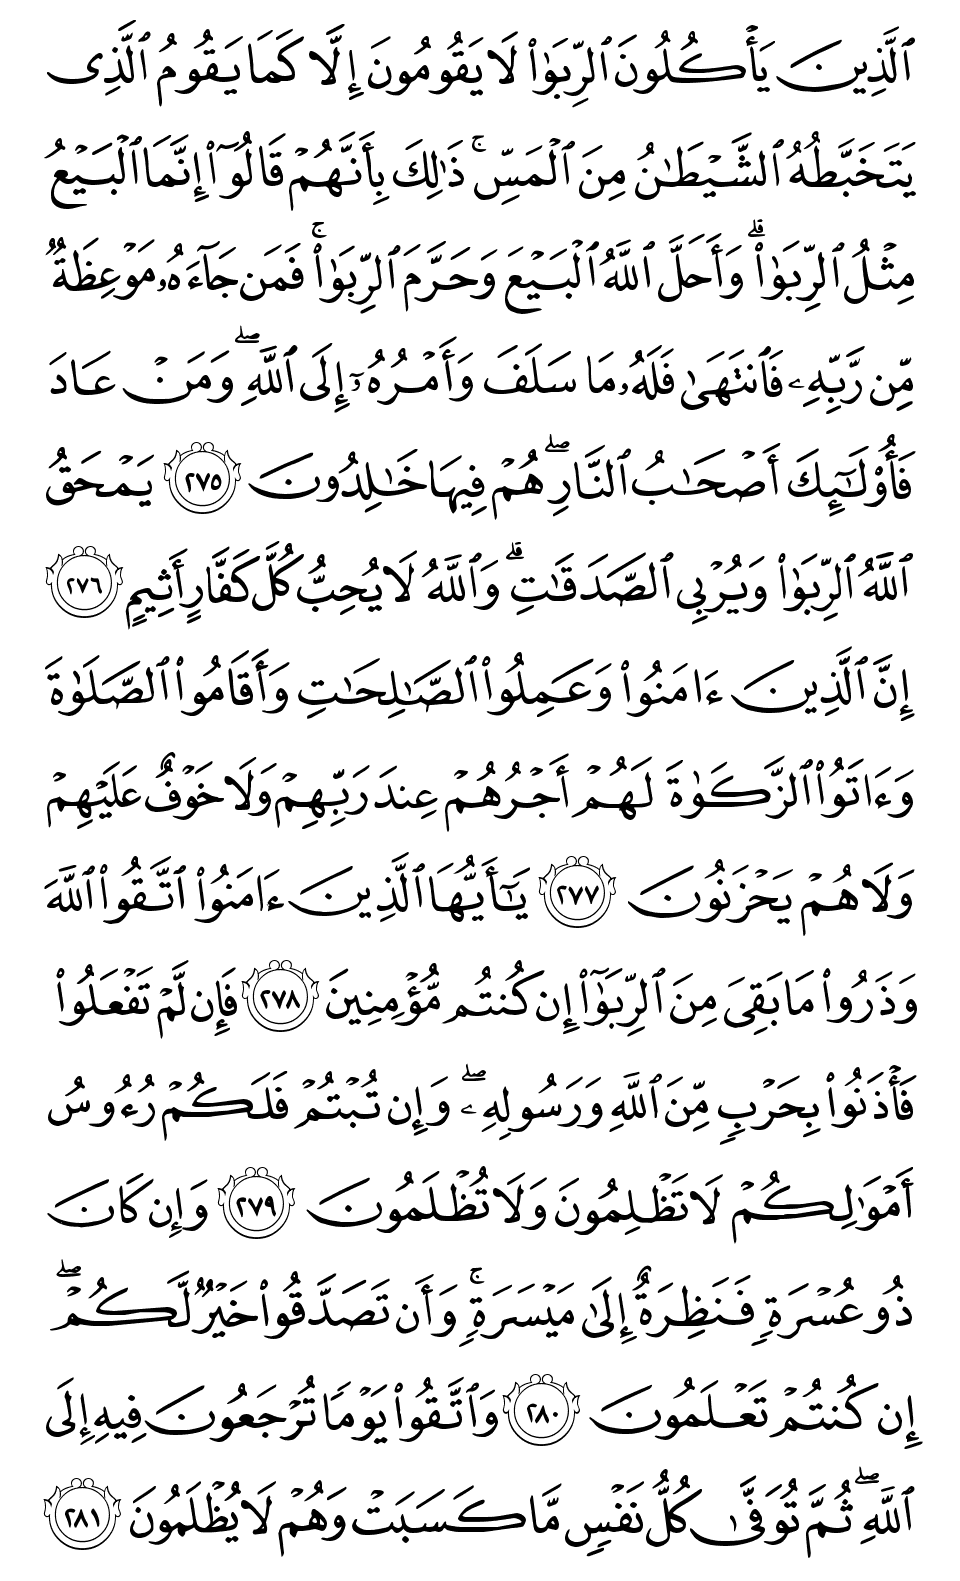 ٱلَّذِينَ يَأۡكُلُونَ ٱلرِّبَوٰاْ لَا يَقُومُونَ إِلَّا كَمَا يَقُومُ ٱلَّذِى
يَتَخَبَّطُهُ ٱلشَّيۡطَـٰنُ مِنَ ٱلۡمَسِّۚ ذَٲلِكَ بِأَنَّهُمۡ قَالُوٓاْ إِنَّمَا ٱلۡبَيۡعُ
مِثۡلُ ٱلرِّبَوٰاْۗ وَأَحَلَّ ٱللَّهُ ٱلۡبَيۡعَ وَحَرَّمَ ٱلرِّبَوٰاْۚ فَمَن جَآءَهُۥ مَوۡعِظَةٌ
مِّن رَّبِّهِۦ فَٱنتَهَىٰ فَلَهُۥ مَا سَلَفَ وَأَمۡرُهُۥۤ إِلَى ٱللَّهِۖ وَمَنۡ عَادَ
فَأُوْلَـٰٓئِكَ أَصۡحَـٰبُ ٱلنَّارِۖ هُمۡ فِيهَا خَـٰلِدُونَ ٢٧٥ يَمۡحَقُ
ٱللَّهُ ٱلرِّبَوٰاْ وَيُرۡبِى ٱلصَّدَقَـٰتِۗ وَٱللَّهُ لَا يُحِبُّ كُلَّ كَفَّارٍ أَثِيمٍ ٢٧٦
إِنَّ ٱلَّذِينَ ءَامَنُواْ وَعَمِلُواْ ٱلصَّـٰلِحَـٰتِ وَأَقَامُواْ ٱلصَّلَوٰةَ
وَءَاتَوُاْ ٱلزَّڪَوٰةَ لَهُمۡ أَجۡرُهُمۡ عِندَ رَبِّهِمۡ وَلَا خَوۡفٌ عَلَيۡهِمۡ
وَلَا هُمۡ يَحۡزَنُونَ ٢٧٧ يَـٰٓأَيُّهَا ٱلَّذِينَ ءَامَنُواْ ٱتَّقُواْ ٱللَّهَ
وَذَرُواْ مَا بَقِىَ مِنَ ٱلرِّبَوٰٓاْ إِن كُنتُم مُّؤۡمِنِينَ ٢٧٨ فَإِن لَّمۡ تَفۡعَلُواْ
فَأۡذَنُواْ بِحَرۡبٍ مِّنَ ٱللَّهِ وَرَسُولِهِۦۖ وَإِن تُبۡتُمۡ فَلَڪُمۡ رُءُوسُ
أَمۡوَٲلِڪُمۡ لَا تَظۡلِمُونَ وَلَا تُظۡلَمُونَ ٢٧٩ وَإِن كَانَ
ذُو عُسۡرَةٍ فَنَظِرَةٌ إِلَىٰ مَيۡسَرَةٍۚ وَأَن تَصَدَّقُواْ خَيۡرٌ لَّڪُمۡۖ
إِن كُنتُمۡ تَعۡلَمُونَ ٢٨٠ وَٱتَّقُواْ يَوۡمًا تُرۡجَعُونَ فِيهِ إِلَى
ٱللَّهِۖ ثُمَّ تُوَفَّىٰ كُلُّ نَفۡسٍ مَّا ڪَسَبَتۡ وَهُمۡ لَا يُظۡلَمُونَ ٢٨١